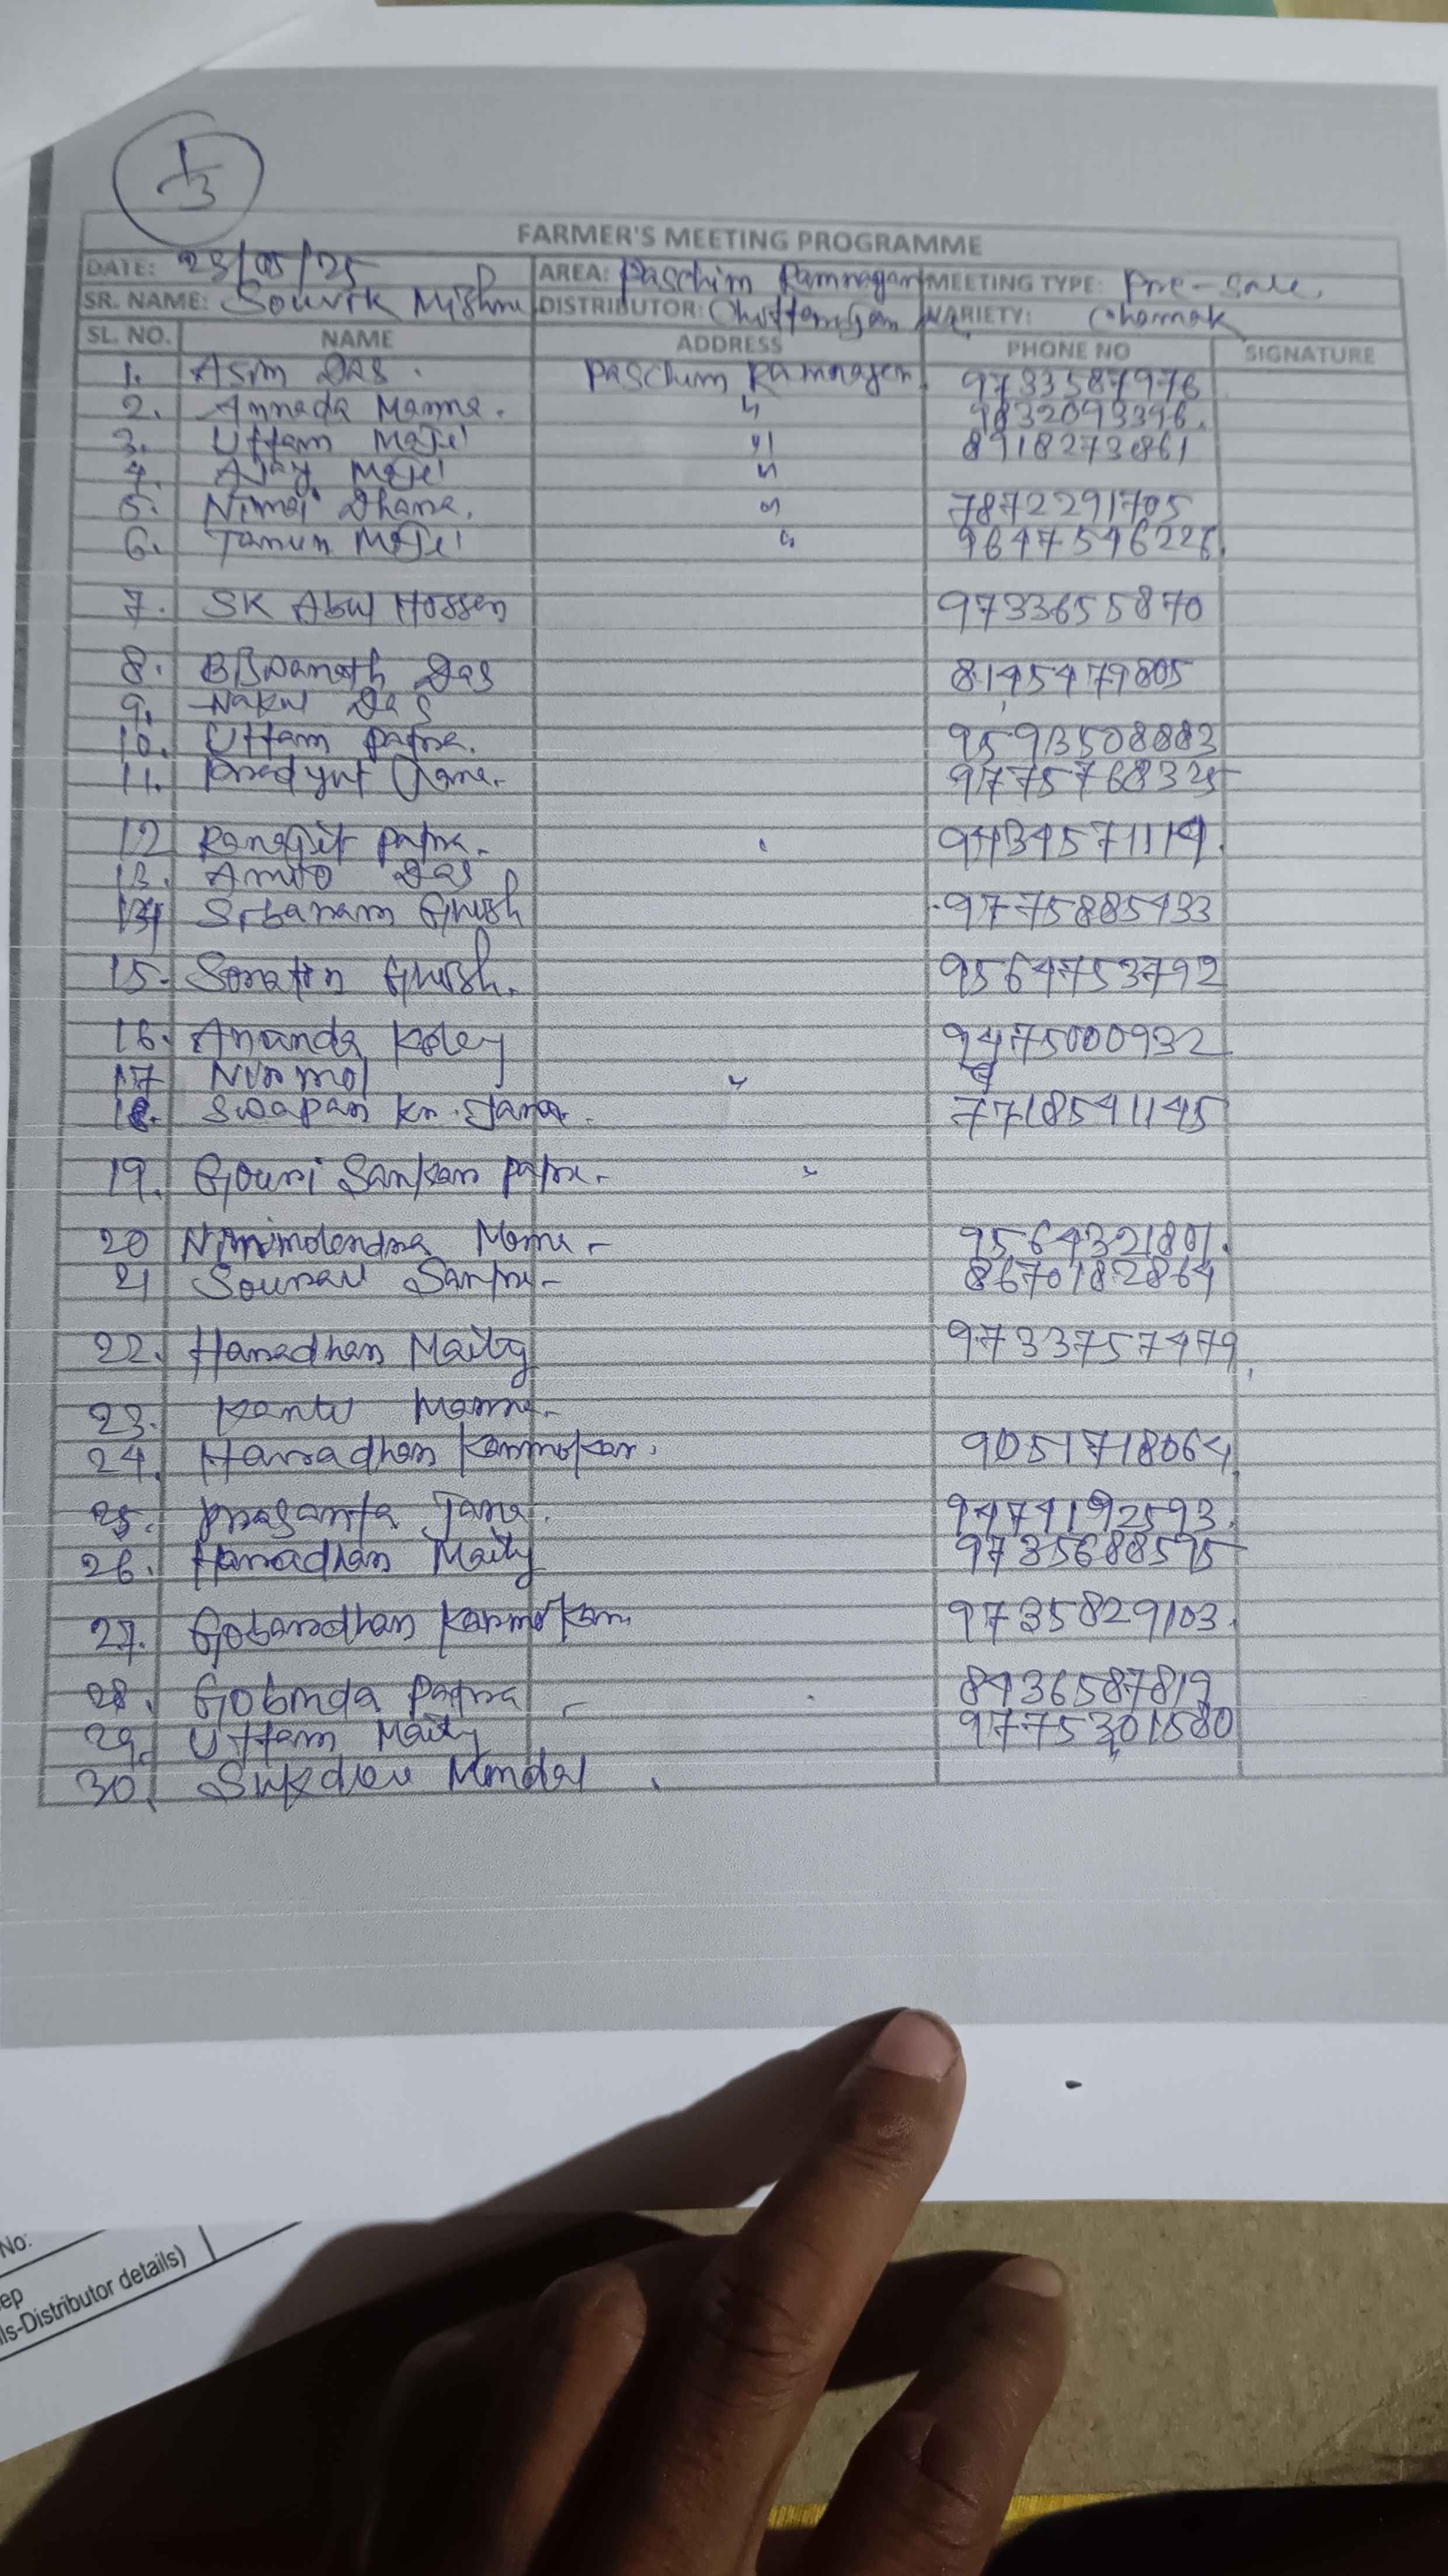 1/3
FARMER'S MEETING PROGRAMME
DATE: 23/05/25 AREA: Paschim Ramnagar MEETING TYPE: Pre-sale
SR. NAME: Souvik Mishra DISTRIBUTOR: VARIETY: Chamak
SL. NO. NAME ADDRESS PHONE NO SIGNATURE
1. Asim Das. Paschim Ramnagar 9733587976
2. Annada Manna. 9832093396.
3. Uttam Majei 8918273861
4. Ajay Majei
5. Nimai Dhara. 7872291705
6. Tarun Majei 9647546226
7. SK Abul Hossen 9733655870
8. Biswanath Das 8145479805
9. Nakul Das
10. Uttam Patra. 9593508883
11. Pradyut Jana. 9775768325
12 Ranajit Patra. 9434571114.
13. Amito Das
14 Srbaram Ghosh 9775885433
15. Sonaton Ghosh. 9564753792
16. Ananda Koley 9475000932
17 Nirmol
18. Swapan Kr. Jana. 7718541145
19. Gouri Sankar Patra.
20 Manna 9564321801.
21 Sourav 8670182864
22. Haradhan Maity 9733757479
23. Kantu Manna.
24. Haradhan Karmokar. 9051718064
25. Prasanta Jana. 9474192593.
26. Haradhan Maity 9735688595
27. Gobardhan Karmokar. 9735829103.
28. Gobinda Patra 8436587819
29. Uttam Maity 9775301580
30. Sukdev Mondal
No:
ep
ls-Distributor details)